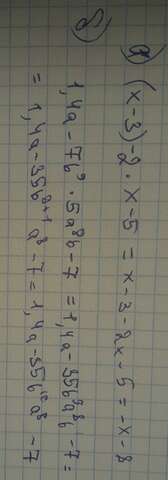 а) (x-3)-2·x-5=x-3-2x-5=-x-8
б) 1,4a-7b⁹·5a⁸b-7=1,4a-35b⁹a⁸b-7=
=1,4a-35b⁹⁺¹a⁸-7=1,4a-35b¹⁰a⁸-7